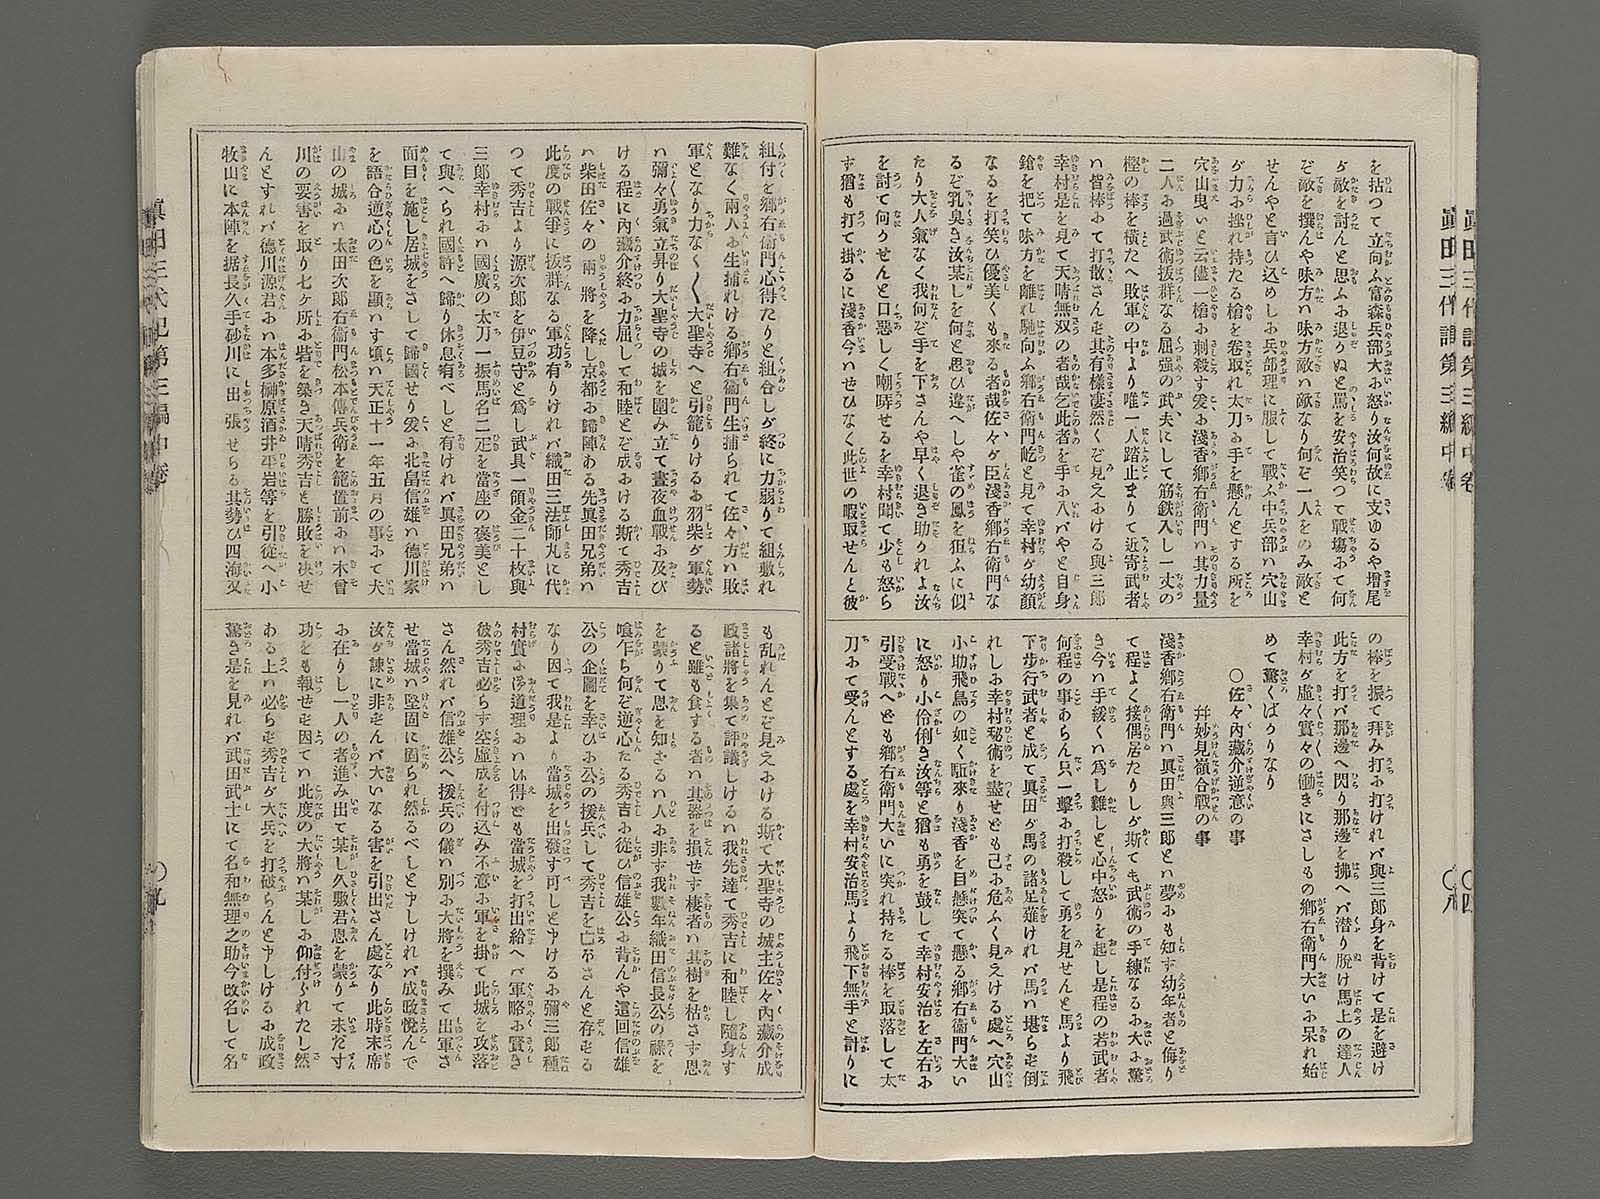 眞田三代記第三編中巻
を拈つて立向ふ富森兵部大お怒り汝何故に支ゆるや増尾
が敵を討んと思ふお退りぬと罵を安治笑つて戰塲おて何
ぞ敵を撰んや味方ハ味方敵ハ敵なり何ぞ一人をのみ敵と
せんやと言ひ込めしお兵部理に服して戰ふ中兵部ハ穴山
が力お挫れ持たる槍を卷取れ太刀お手を懸んとする所を
穴山曳いと云儘一槍お刺殺す爰お淺香郷右衛門ハ其力量
二人お過武術拔群なる屈强の武夫にして筋鉄入し一丈の
樫の棒を横たへ敗軍の中より唯一人踏止まりて近寄武者
ハ皆棒おて打散さんず其有樣凄然くぞ見えおける與三郎
幸村是を見て天晴無双の者哉乞此者を手お入バやと自身
鎗を把て味方を離れ馳向ふ郷右衛門屹と見て幸村が幼顏
なるを打笑ひ優美くも來る者哉佐々が臣淺香郷右衛門な
るぞ乳臭き汝某しを何と思ひ違へしや雀の鳳を狙ふに似
たり大人氣なく我何ぞ手を下さんや早く退き助りれよ汝
を討て何かせんと口惡しく嘲哢せるを幸村聞て少も怒ら
ず猶も打て掛るに淺香今ハせひなく此世の暇取せんと彼
の棒を振て拜み打お打けれバ與三郎身を背けて是を避け
此方を打バ那邊へ閃り那邊を拂へバ潜り脱け馬上の達人
幸村が虚々實々の働きにさしもの郷右衛門大いお呆れ始
めて驚くばかりなり
〇佐々内藏介逆意の事
并妙見嶺合戰の事
淺香郷右衛門ハ眞田與三郎とハ夢お知す幼年者と侮り
て程よく接偶居たりしが斯ても武術の手練なるお大お驚
き今ハ手緩くハ爲し難しと心中怒りを起し是程の若武者
何程の事あらん只一擊お打殺して勇を見せんと馬より飛
下歩行武者と成て眞田が馬の諸足薙けれバ馬ハ堪らず倒
れしお幸村秘術を盡せども己お危ふく見えける處へ穴山
小助飛鳥の如く駈來り淺香を目懸突て懸る郷右衛門大い
に怒り小伶俐き汝等と猶も勇を鼓して幸村安治を左右お
引受戰へども郷右衛門大いに突れ持たる棒を取落して太
刀おて受んとする處を幸村安治馬より飛下無手と計りに
組付を郷右衛門心得たりと組合しが終に力弱りて組敷れ
難なく兩人お生捕れける郷右衛門生捕られて佐々方ハ敗
軍となり力なく〱大聖寺へと引籠りけるお羽柴が軍勢
ハ彌々勇氣立昇り大聖寺の城を圍み立て晝夜血戰お及び
ける程に内藏介終お力屈して和睦とぞ成おける斯て秀吉
ハ柴田佐々の兩將を降し京都お歸陣ある先眞田兄弟ハ
此度の戰爭に拔群なる軍功有りけれバ織田三法師丸に代
つて秀吉より源次郎を伊豆守と爲し武具一領金二十枚與
三郎幸村おハ國廣の太刀一振馬名二疋を當座の褒美とし
て與へられ國許へ歸り休息有べしと有けれバ眞田兄弟ハ
面目を施し居城をさして歸國せり爰お北畠信雄ハ德川家
を語合逆心の色を顯ハす頃ハ天正十一年五月の事おて犬
山の城おハ太田次郎右衛門松本傳兵衛を籠置前おハ木曾
川の要害を取り七ケ所お砦を築き天晴秀吉と勝敗を决せ
んとすれバ德川源君おハ本多榊原酒井平岩等を引從へ小
牧山に本陣を据長久手砂川に出張せらる其勢ひ四海又
も乱れんとぞ見えおける斯て大聖寺の城主佐々内藏介成
政諸將を集て評議しけるハ我先達て秀吉に和睦し隨身す
ると雖も食する者ハ其器を損せす棲者ハ其樹を枯さす恩
を蒙りて恩を知ざるハ人お非す我數年織田信長公の祿を
喰乍ら何ぞ逆心たる秀吉お從ひ信雄公お背んや這回信雄
公の企圖を幸ひお公の援兵して秀吉を亡ぼさんと存ずる
なり因て我是より當城を出發す可しと申けるお彌三郎種
村實お御道理おハ候得ども當城を打出給へバ軍略お賢き
彼秀吉必らず空虚成を付込み不意お軍を掛て此城を攻落
さん然れバ信雄公へ援兵の儀ハ別お大將を撰みて出軍さ
せ當城ハ堅固に固られ然るべしと申しけれバ成政悦んで
汝が諫に非ずんバ大いなる害を引出さん處なり此時末席
お在りし一人の者進み出て某し久敷君恩を蒙りて未だ寸
功をも報せず因てハ此度の大將ハ某しお仰付られたし然
ある上ハ必らず秀吉が大兵を打破らんと申しけるお成政
驚き是を見れバ武田武士にて名和無理之助今改名して名
眞田三代記第三編中巻
〇九